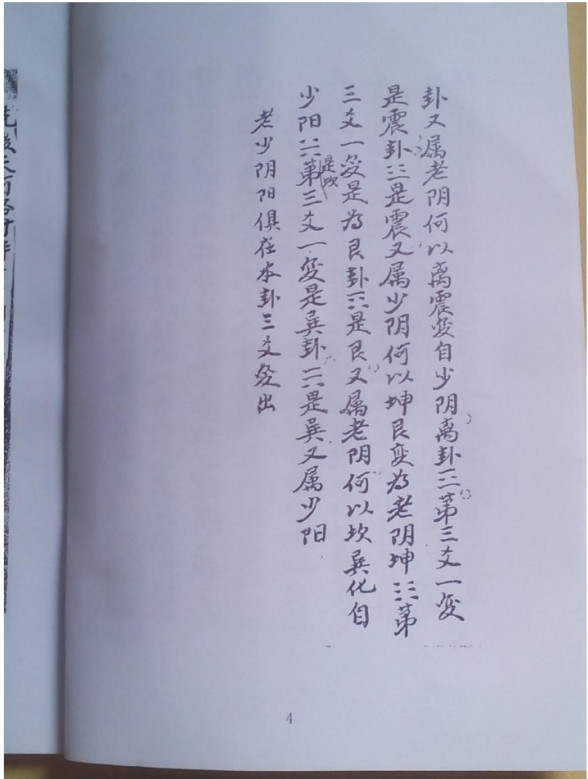 卦又属老阴何以离震变自少阴离卦☲第三爻一变
是震卦☳是震又属少阴何以坤艮变为老阴坤☷第
三爻一变是为艮卦☶是艮又属老阴何以坎巽化自
少阳☵第三爻一变是巽卦☴是巽又属少阳
老少阴阳俱在本卦三爻变出
4